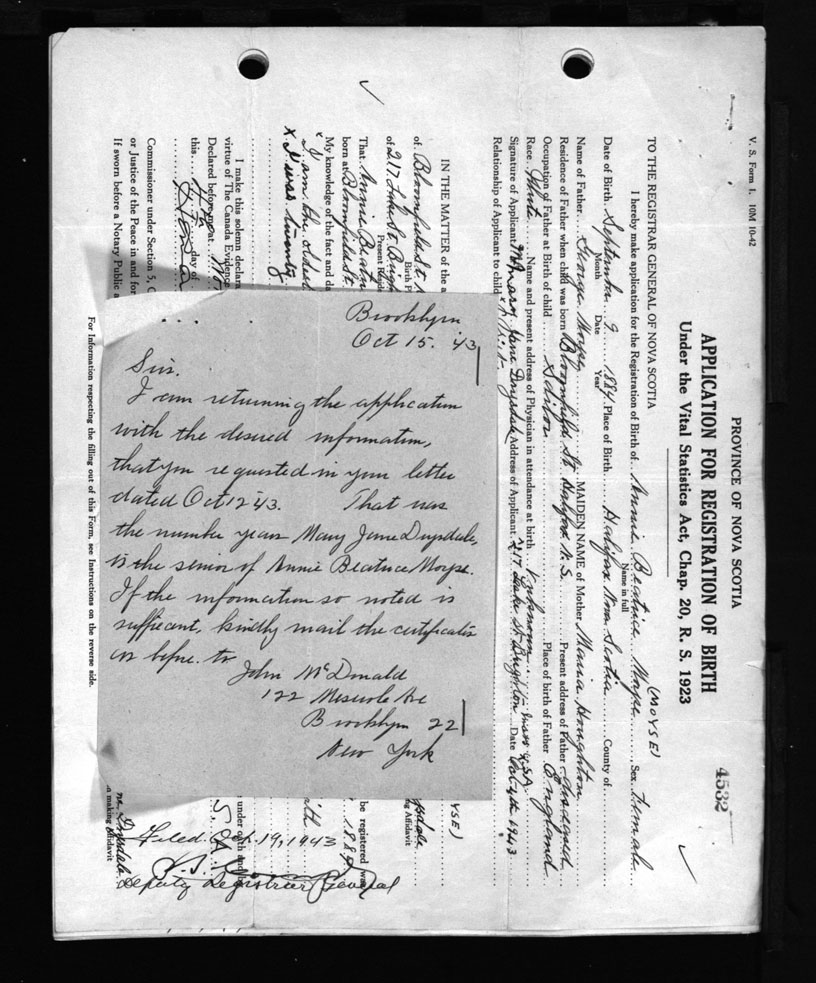 V. S. Form 1. 10M 10-42
PROVINCE OF NOVA SCOTIA
4532
APPLICATION FOR REGISTRATION OF BIRTH
Under the Vital Statistics Act, Chap. 20, R. S. 1923
TO THE REGISTRAR GENERAL OF NOVA SCOTIA
(MOYSE)
I hereby make application for the Registration of Birth of Annie Beatrice Moyse Sex Female
Name in full
Date of Birth September 9 1884 Place of Birth Halifax Nova Scotia County of
Month Date Year
Name of Father George Moyse MAIDEN NAME of Mother Maria Houghton
Residence of Father when child was born Bloomfield St. Halifax N.S. Present address of Father deceased
Occupation of Father at Birth of child Place of birth of Father England
Race White Name and present address of Physician in attendance at birth Unknown
Signature of Applicant Mary Jane Drysdale Address of Applicant 217 Lake St Brighton Mass USA Date Oct 1943
Relationship of Applicant to child
IN THE MATTER of the a
of Bloomfield St.
Birth P
of 217 Lake St Brigh
Present Resid
YSE)
ysdale
g Affidavit
That Annie Beatri
be registered was
born at Bloomfield St.
My knowledge of the fact and da
x I am the oldest
x I was twenty
I make this solemn declara
under oath and by
virtue of The Canada Evidence
Declared before me at
this 4th day of
Commissioner under Section 5, C
or Justice of the Peace in and for
If sworn before a Notary Public a
Drysdale
n making Affidavit
For Information respecting the filling out of this Form, see Instructions on the reverse side.
Brooklyn
Oct 15. '43
Sir.
I am returning the application
with the desired information,
that you requested in your letter
dated Oct 12-43. That was
the number years Mary Jane Drysdale,
is the senior of Annie Beatrice Moyse.
If the information so noted is
sufficent, kindly mail the certificate
as before. to
John McDonald
122 Meserole Ave
Brooklyn 22
New York
Filed. Oct. 19, 1943
Deputy Registrar General